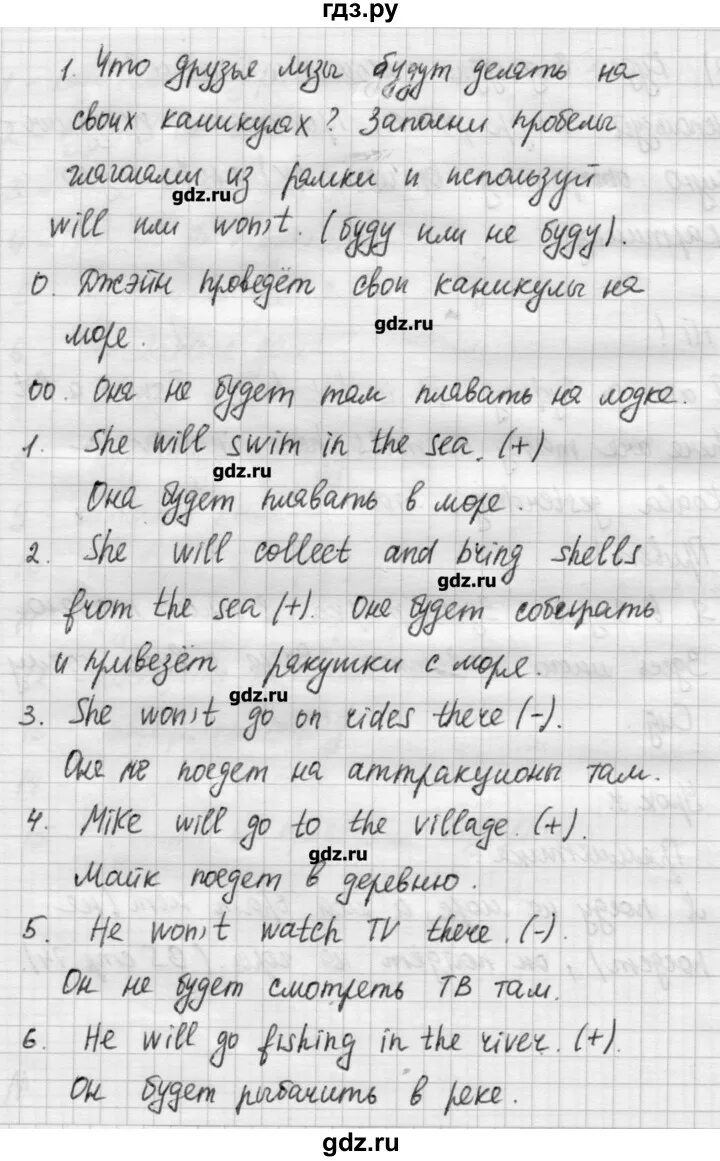 гдз.ру
1. Что друзья Лизы будут делать на
своих каникулах? Заполни пробелы
глаголами из рамки и используй
gdz.ru
will или won't. (буду или не буду).
0. Джэйн проведёт свои каникулы на
gdz.ru
море.
00. Она не будет там плавать на лодке.
1. She will swim in the sea. (+)
gdz.ru
Она будет плавать в море.
2. She will collect and bring shells
gdz.ru
from the sea (+). Она будет собирать
и привезёт ракушки с моря.
gdz.ru
3. She won't go on rides there (-).
Она не поедет на аттракционы там.
4. Mike will go to the village. (+).
gdz.ru
Майк поедет в деревню.
5. He won't watch TV there. (-).
gdz.ru
Он не будет смотреть ТВ там.
6. He will go fishing in the river. (+).
gdz.ru
Он будет рыбачить в реке.
gdz.ru